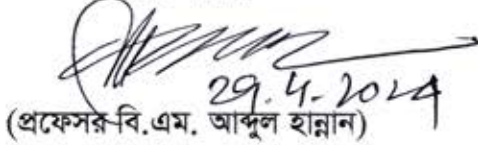 29.4.2024
(প্রফেসর বি.এম. আব্দুল হান্নান)